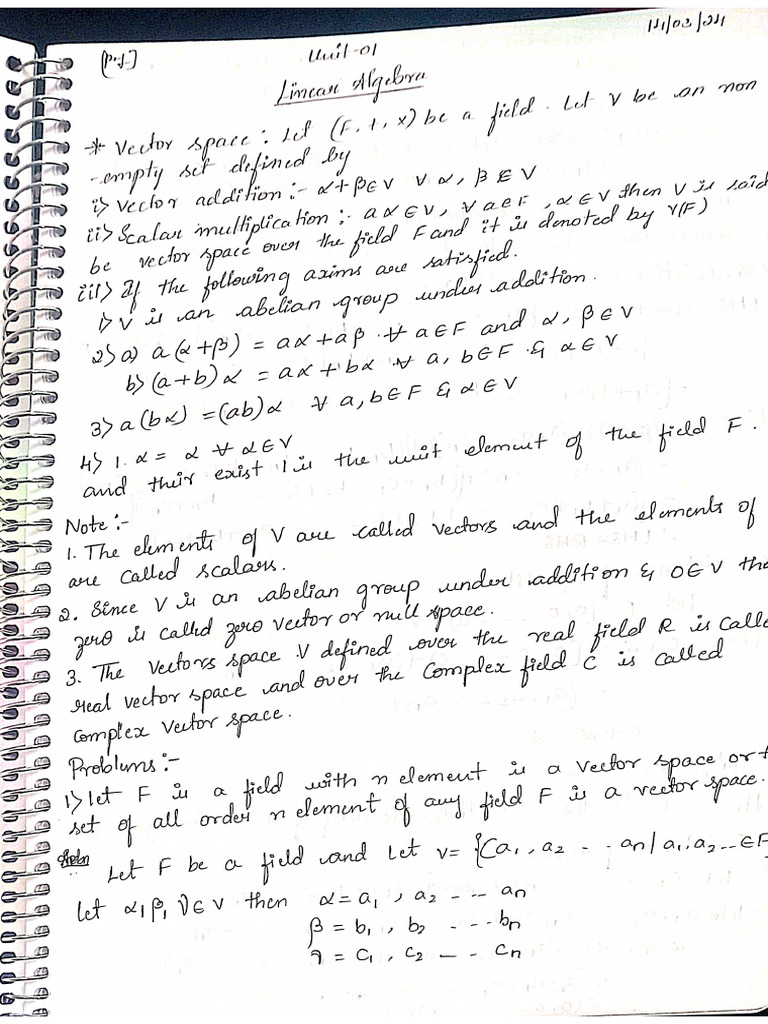 14/03/24
[P.J]
Unit-01
Linear Algebra
* Vector space : Let (F, +, x) be a field. Let V be an non
-empty set defined by
i> Vector addition :- α+β∈V ∀ α, β ∈ V
ii> Scalar multiplication :- aα∈V, ∀ a∈F, α∈V then V is said
be vector space over the field F and it is denoted by V(F)
iii> If the following axims are satisfied.
1> V is an abelian group under addition.
2> a) a(α+β) = aα+aβ ∀ a∈F and α, β∈V
b> (a+b)α = aα+bα ∀ a, b∈F & α∈V
3> a(bα) = (ab)α ∀ a, b∈F & α∈V
4> 1.α = α ∀ α∈V
and their exist 1 is the unit element of the field F.
Note :-
1. The elements of V are called vectors and the elements of
are called scalars.
2. Since V is an abelian group under addition & 0∈V the
zero is called zero vector or null space.
3. The vectors space V defined over the real field R is calle
real vector space and over the complex field C is called
complex vector space.
Problums :-
1> let F is a field with n element is a vector space or t
set of all order n element of any field F is a vector space.
Soln Let F be a field and let v= {(a1, a2 - - an / a1, a2 -- ∈F
let α, β, γ∈V then α = a1, a2 - - - an
β = b1, b2 - - - bn
γ = c1, c2 - - - cn